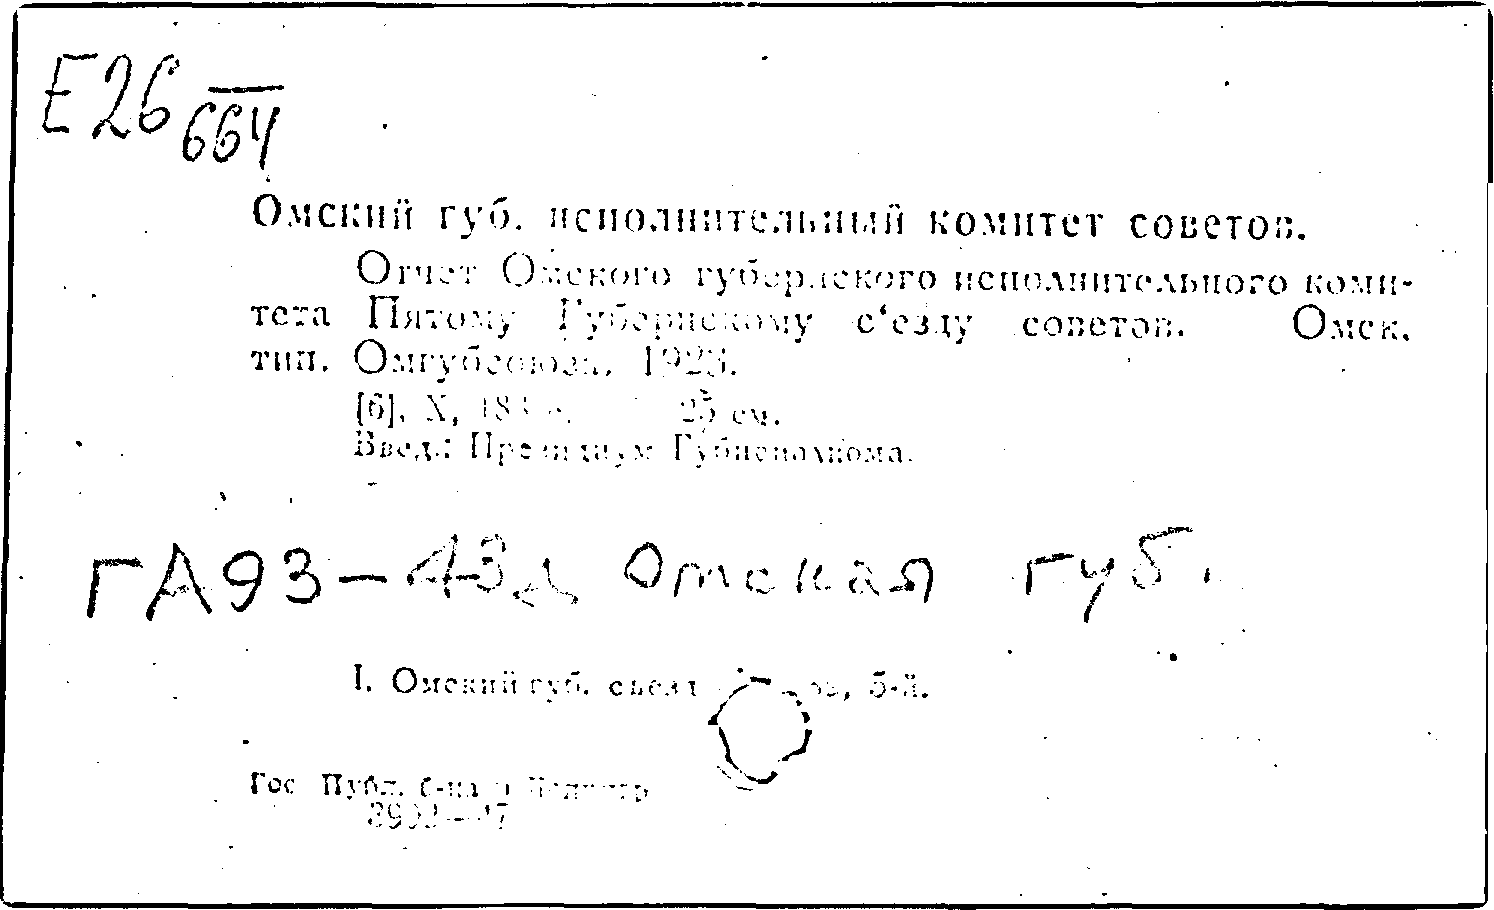 Е26
664
Омский губ. исполнительный комитет советов.
Отчет Омского губернского исполнительного коми-
тета Пятому Губернскому с‘езду советов. Омск.
тип. Омгубсоюза. 1923.
[6], X, 25 см.
Введ.: Президиум Губисполкома.
ГА93-43д Омская губ.
I. Омский губ. съезд 5-й.
Гос Публ. б-ка